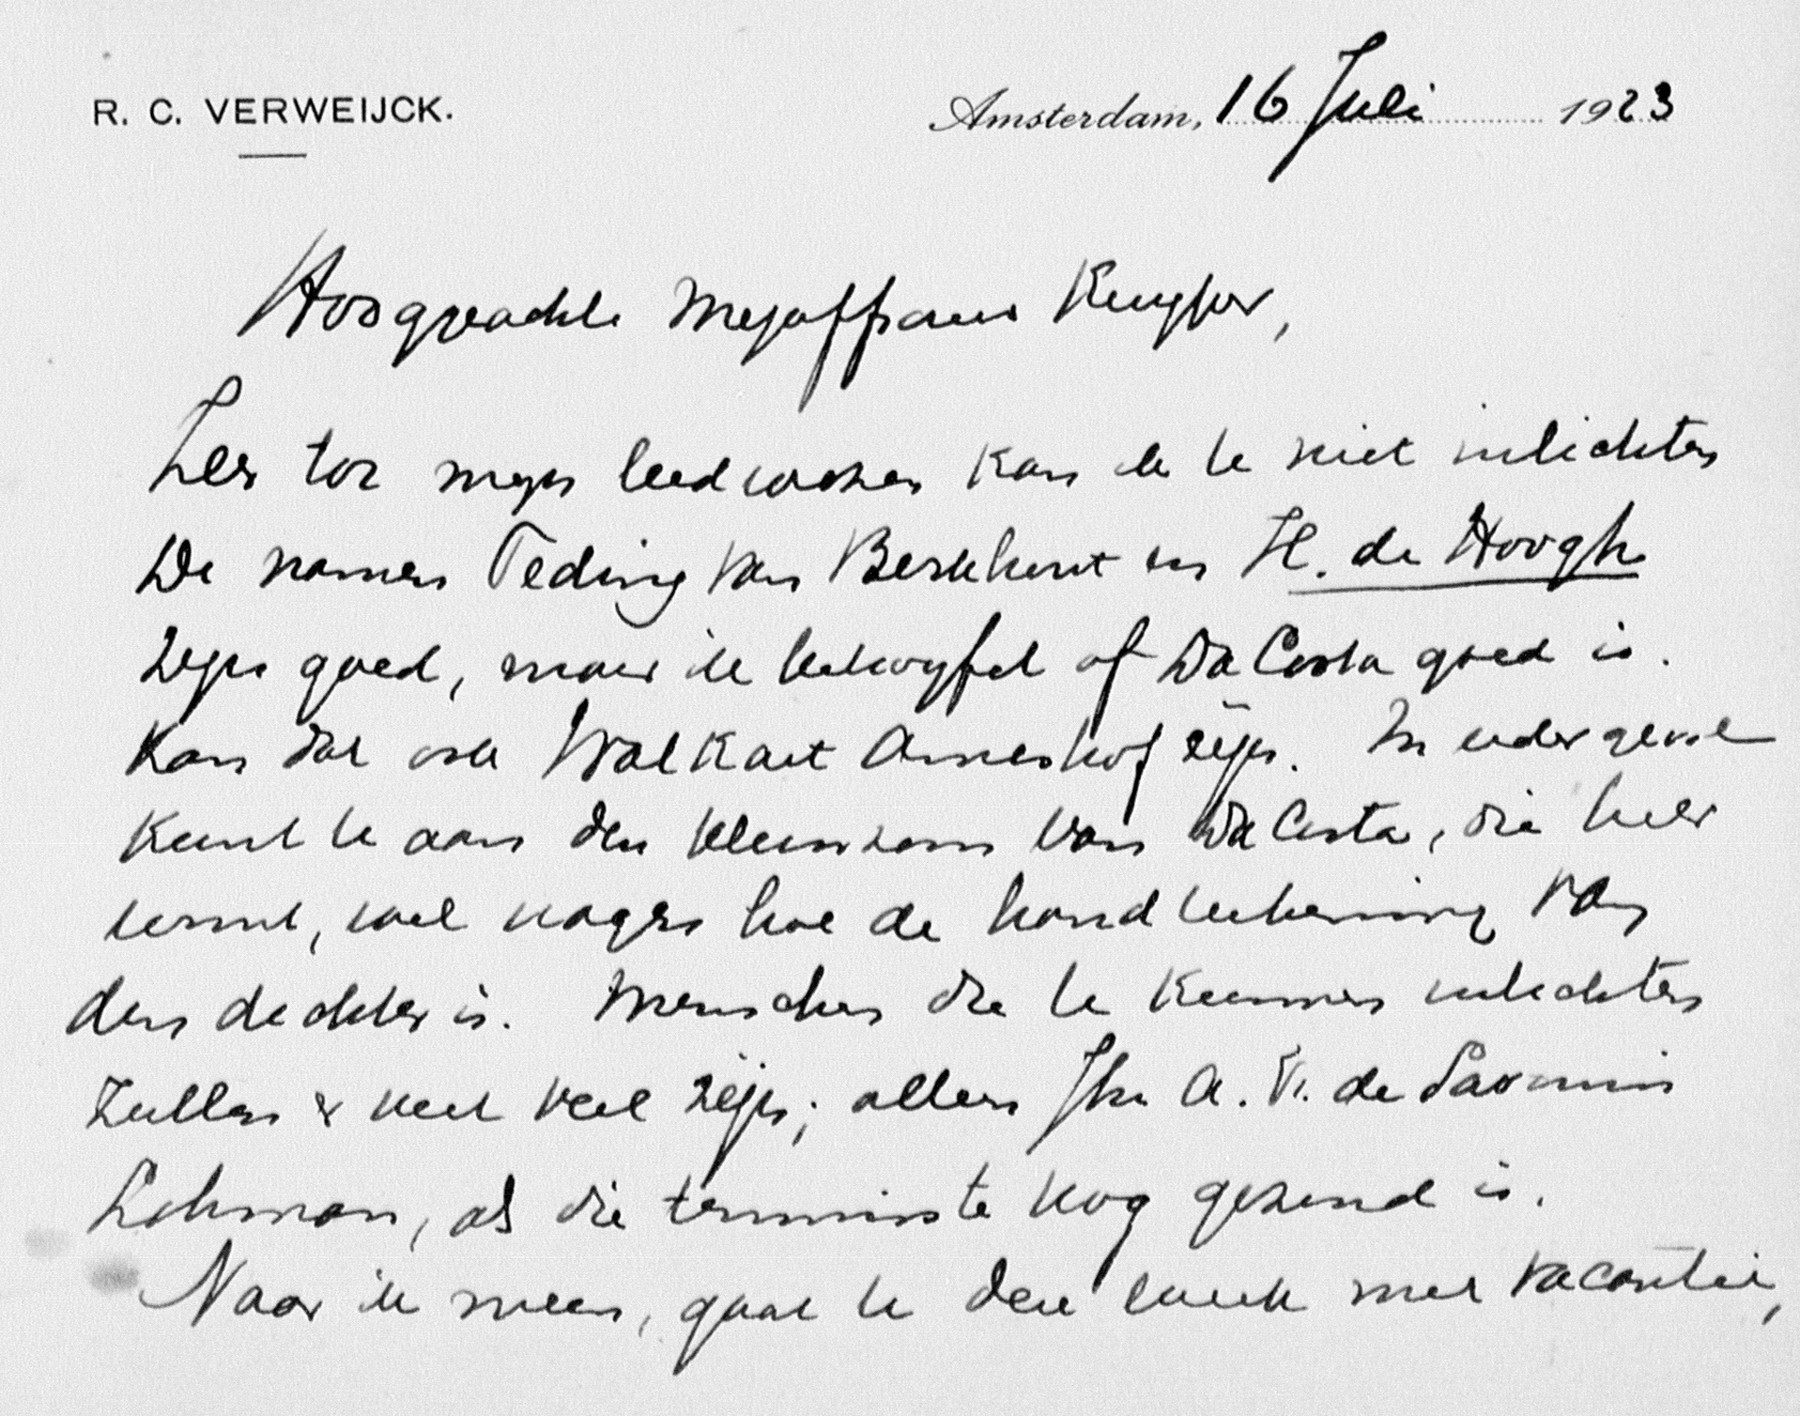 R. C. VERWEIJCK.
Amsterdam, 16 Juli 1923
Hooggeachte Mejuffrouw Kuyper,
Zeer tot mijn leedwezen kan ik U niet inlichten
De namen Teding van Berkhout en H. de Hoogh
zijn goed, maar ik betwijfel of Da Costa goed is.
Kan dat ook Walkart zijn. In ieder geval
kunt U aan den kleinzoon van Da Costa, die hier
komt, wel vragen hoe de handteekening van
den dichter is. Menschen die U kunnen inlichten
zullen er niet veel zijn; alleen Jhr A. F. de Savornin
Lohman, als die tenminste nog gezond is.
Naar ik meen, gaat U deze week met vacantie,